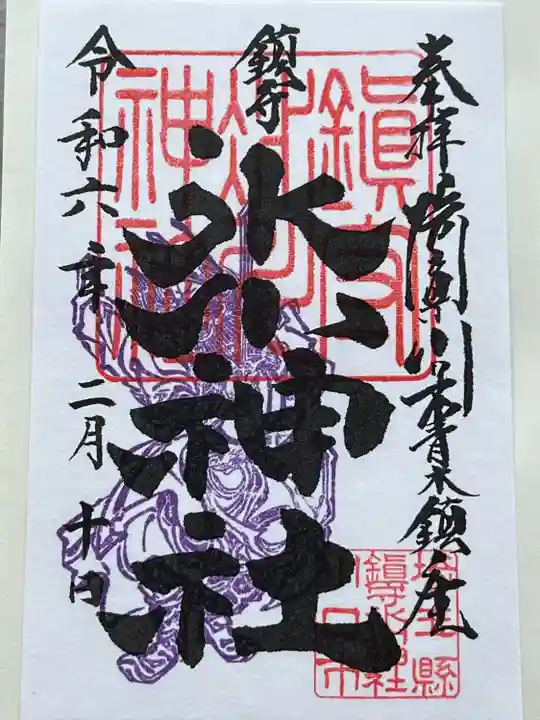 奉拝
川口青木鎮座
鎮守
氷川神社
令和六年二月十日
鎮守
氷川
神社
埼玉縣
鎮守氷川神社
川口市